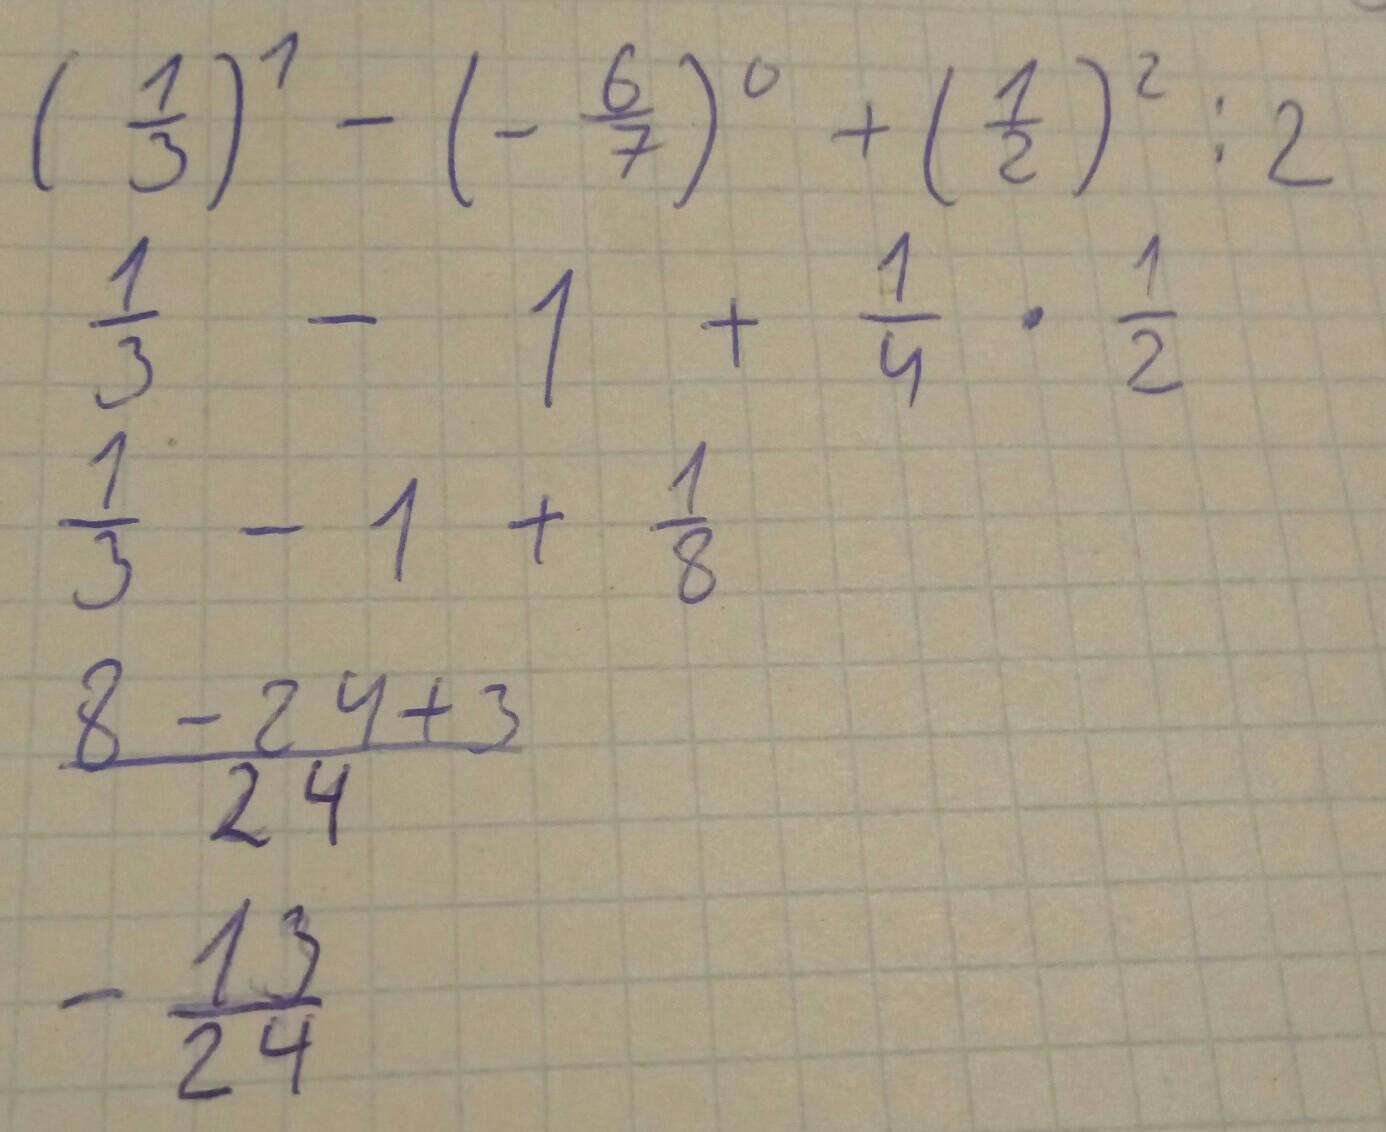 (1/3)^1 - (-6/7)^0 + (1/2)^2 : 2
1/3 - 1 + 1/4 · 1/2
1/3 - 1 + 1/8
(8 - 24 + 3)/24
- 13/24